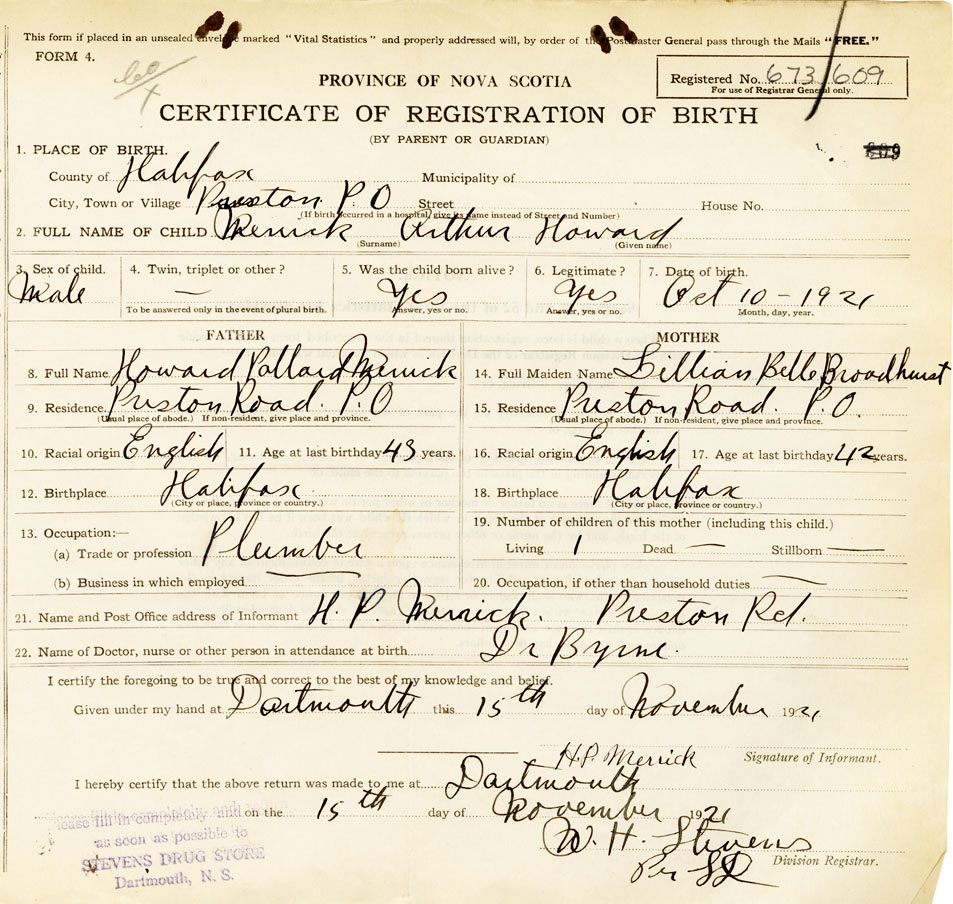 This form if placed in an unsealed envelope marked "Vital Statistics" and properly addressed will, by order of the Postmaster General pass through the Mails "FREE."
FORM 4.
PROVINCE OF NOVA SCOTIA
Registered No. 673609
For use of Registrar General only.
CERTIFICATE OF REGISTRATION OF BIRTH
(BY PARENT OR GUARDIAN)
1. PLACE OF BIRTH.
County of Halifax Municipality of
City, Town or Village Preston P.O Street House No.
(If birth occurred in a hospital, give its name instead of Street and Number)
2. FULL NAME OF CHILD Merrick Arthur Howard
(Surname) (Given name)
3. Sex of child. 4. Twin, triplet or other? 5. Was the child born alive? 6. Legitimate? 7. Date of birth.
Male — Yes Yes Oct 10 - 1921
To be answered only in the event of plural birth. Answer, yes or no. Answer, yes or no. Month, day, year.
FATHER MOTHER
8. Full Name Howard Pollard Merrick 14. Full Maiden Name Lillian Belle Broadhurst
9. Residence Preston Road. P.O 15. Residence Preston Road. P.O.
(Usual place of abode.) If non-resident, give place and province. (Usual place of abode.) If non-resident, give place and province.
10. Racial origin English 11. Age at last birthday 43 years. 16. Racial origin English 17. Age at last birthday 42 years.
12. Birthplace Halifax 18. Birthplace Halifax
(City or place, province or country.) (City or place, province or country.)
13. Occupation:— 19. Number of children of this mother (including this child.)
(a) Trade or profession Plumber Living 1 Dead — Stillborn —
(b) Business in which employed 20. Occupation, if other than household duties —
21. Name and Post Office address of Informant H. P. Merrick. Preston Rd.
22. Name of Doctor, nurse or other person in attendance at birth Dr Byrne.
I certify the foregoing to be true and correct to the best of my knowledge and belief.
Given under my hand at Dartmouth this 15th day of November 1921
H.P. Merrick Signature of Informant.
I hereby certify that the above return was made to me at Dartmouth
on the 15th day of November 1921
W. H. Stevens
Division Registrar.
Please fill in completely and
as soon as possible to
STEVENS DRUG STORE
Dartmouth, N. S.